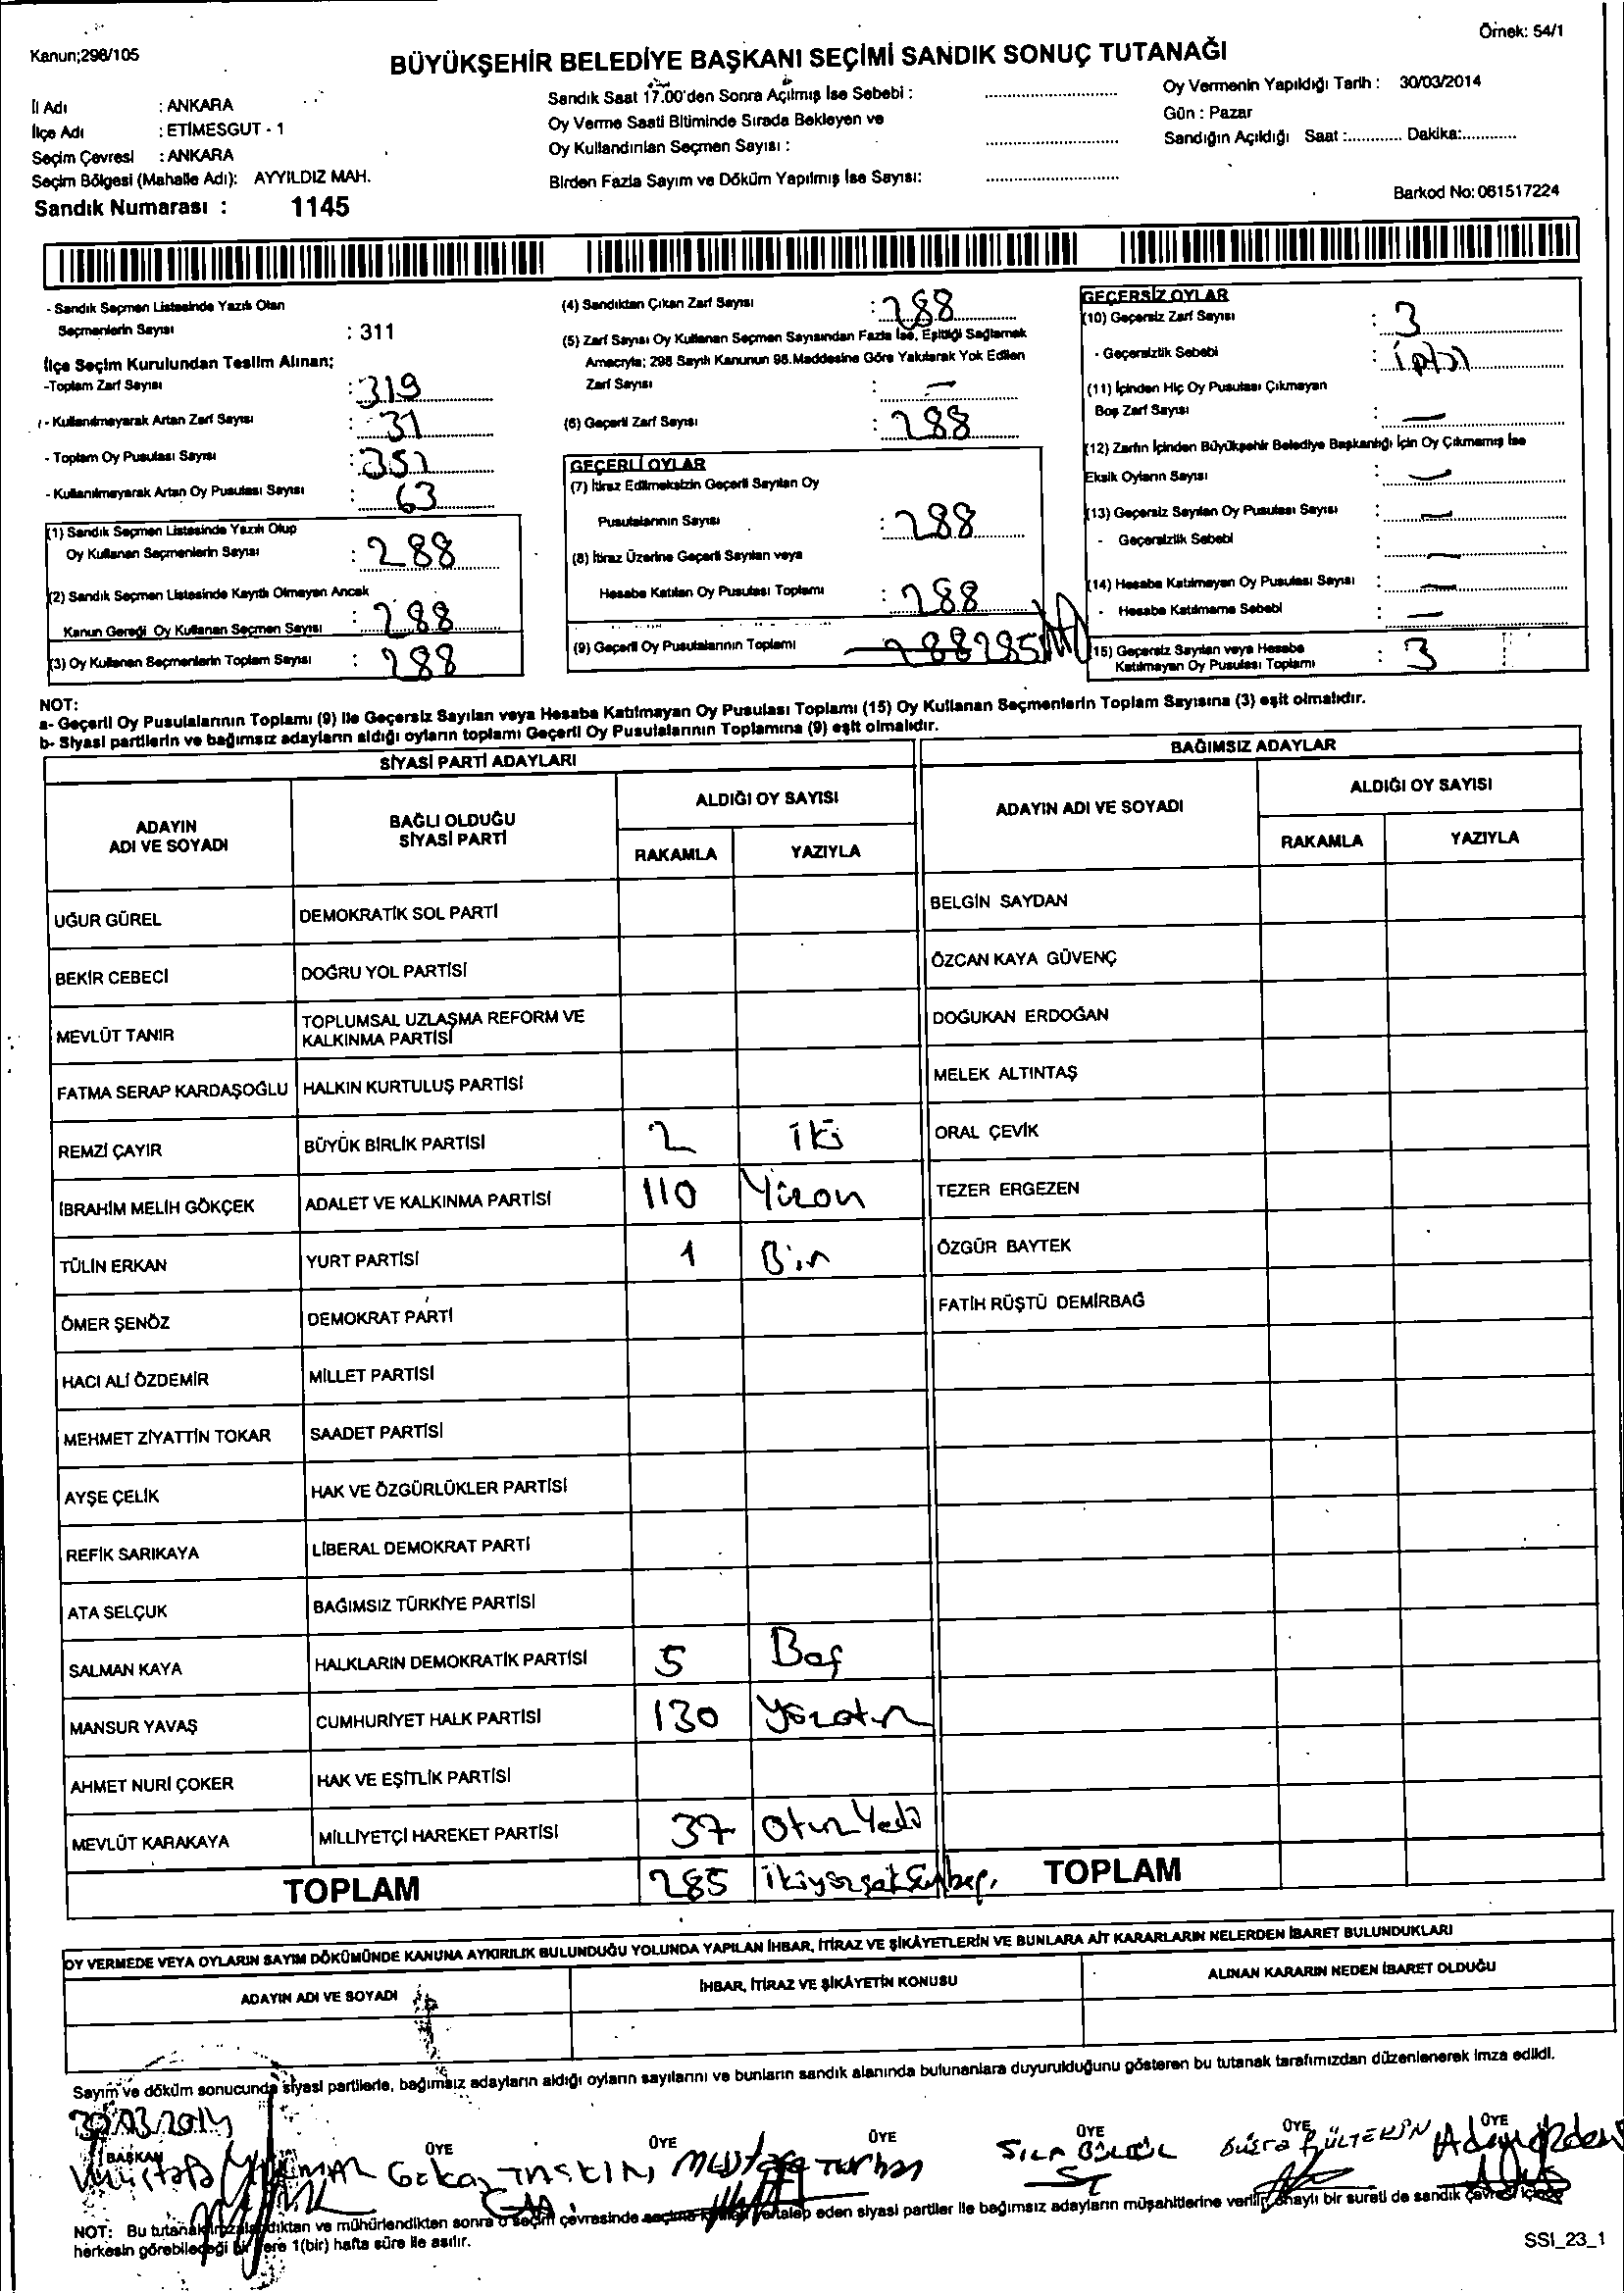 Örnek: 54/1
Kanun;298/105
BÜYÜKŞEHİR BELEDİYE BAŞKANI SEÇİMİ SANDIK SONUÇ TUTANAĞI
İl Adı : ANKARA
İlçe Adı : ETİMESGUT - 1
Seçim Çevresi : ANKARA
Seçim Bölgesi (Mahalle Adı): AYYILDIZ MAH.
Sandık Numarası : 1145
Sandık Saat 17.00'den Sonra Açılmış İse Sebebi :
Oy Verme Saati Bitiminde Sırada Bekleyen ve
Oy Kullandırılan Seçmen Sayısı :
Birden Fazla Sayım ve Döküm Yapılmış İse Sayısı:
Oy Vermenin Yapıldığı Tarih : 30/03/2014
Gün : Pazar
Sandığın Açıldığı Saat :............ Dakika:............
Barkod No: 061517224
- Sandık Seçmen Listesinde Yazılı Olan
Seçmenlerin Sayısı : 311
İlçe Seçim Kurulundan Teslim Alınan;
-Toplam Zarf Sayısı : 319
- Kullanılmayarak Artan Zarf Sayısı : 31
- Toplam Oy Pusulası Sayısı : 351
- Kullanılmayarak Artan Oy Pusulası Sayısı : 63
(1) Sandık Seçmen Listesinde Yazılı Olup
Oy Kullanan Seçmenlerin Sayısı : 288
(2) Sandık Seçmen Listesinde Kayıtlı Olmayan Ancak
Kanun Gereği Oy Kullanan Seçmen Sayısı : 288
(3) Oy Kullanan Seçmenlerin Toplam Sayısı : 288
(4) Sandıktan Çıkan Zarf Sayısı : 288
(5) Zarf Sayısı Oy Kullanan Seçmen Sayısından Fazla İse, Eşitliği Sağlamak
Amacıyla; 298 Sayılı Kanunun 98.Maddesine Göre Yakılarak Yok Edilen
Zarf Sayısı : -
(6) Geçerli Zarf Sayısı : 288
GEÇERLİ OYLAR
(7) İtiraz Edilmeksizin Geçerli Sayılan Oy
Pusulalarının Sayısı : 288
(8) İtiraz Üzerine Geçerli Sayılan veya
Hesaba Katılan Oy Pusulası Toplamı : 288
(9) Geçerli Oy Pusulalarının Toplamı 288 285
GEÇERSİZ OYLAR
(10) Geçersiz Zarf Sayısı : 3
- Geçersizlik Sebebi : iptal
(11) İçinden Hiç Oy Pusulası Çıkmayan
Boş Zarf Sayısı : -
(12) Zarfın İçinden Büyükşehir Belediye Başkanlığı İçin Oy Çıkmamış İse
Eksik Oyların Sayısı : -
(13) Geçersiz Sayılan Oy Pusulası Sayısı : -
- Geçersizlik Sebebi : -
(14) Hesaba Katılmayan Oy Pusulası Sayısı : -
- Hesaba Katılmama Sebebi : -
(15) Geçersiz Sayılan veya Hesaba
Katılmayan Oy Pusulası Toplamı : 3
NOT:
a- Geçerli Oy Pusulalarının Toplamı (9) ile Geçersiz Sayılan veya Hesaba Katılmayan Oy Pusulası Toplamı (15) Oy Kullanan Seçmenlerin Toplam Sayısına (3) eşit olmalıdır.
b- Siyasi partilerin ve bağımsız adayların aldığı oyların toplamı Geçerli Oy Pusulalarının Toplamına (9) eşit olmalıdır.
SİYASİ PARTİ ADAYLARI
BAĞIMSIZ ADAYLAR
ADAYIN
ADI VE SOYADI
BAĞLI OLDUĞU
SİYASİ PARTİ
ALDIĞI OY SAYISI
RAKAMLA YAZIYLA
ADAYIN ADI VE SOYADI
ALDIĞI OY SAYISI
RAKAMLA YAZIYLA
UĞUR GÜREL DEMOKRATİK SOL PARTİ BELGİN SAYDAN
BEKİR CEBECİ DOĞRU YOL PARTİSİ ÖZCAN KAYA GÜVENÇ
MEVLÜT TANIR TOPLUMSAL UZLAŞMA REFORM VE
KALKINMA PARTİSİ DOĞUKAN ERDOĞAN
FATMA SERAP KARDAŞOĞLU HALKIN KURTULUŞ PARTİSİ MELEK ALTINTAŞ
REMZİ ÇAYIR BÜYÜK BİRLİK PARTİSİ 2 iki ORAL ÇEVİK
İBRAHİM MELİH GÖKÇEK ADALET VE KALKINMA PARTİSİ 110 Yüzon TEZER ERGEZEN
TÜLİN ERKAN YURT PARTİSİ 1 Bir ÖZGÜR BAYTEK
ÖMER ŞENÖZ DEMOKRAT PARTİ FATİH RÜŞTÜ DEMİRBAĞ
HACI ALİ ÖZDEMİR MİLLET PARTİSİ
MEHMET ZİYATTİN TOKAR SAADET PARTİSİ
AYŞE ÇELİK HAK VE ÖZGÜRLÜKLER PARTİSİ
REFİK SARIKAYA LİBERAL DEMOKRAT PARTİ
ATA SELÇUK BAĞIMSIZ TÜRKİYE PARTİSİ
SALMAN KAYA HALKLARIN DEMOKRATİK PARTİSİ 5 Beş
MANSUR YAVAŞ CUMHURİYET HALK PARTİSİ 130 Yüzotuz
AHMET NURİ ÇOKER HAK VE EŞİTLİK PARTİSİ
MEVLÜT KARAKAYA MİLLİYETÇİ HAREKET PARTİSİ 37 Otuz Yedi
TOPLAM 285 ikiyüzseksenbeş. TOPLAM
OY VERMEDE VEYA OYLARIN SAYIM DÖKÜMÜNDE KANUNA AYKIRILIK BULUNDUĞU YOLUNDA YAPILAN İHBAR, İTİRAZ VE ŞİKÂYETLERİN VE BUNLARA AİT KARARLARIN NELERDEN İBARET BULUNDUKLARI
ADAYIN ADI VE SOYADI İHBAR, İTİRAZ VE ŞİKÂYETİN KONUSU ALINAN KARARIN NEDEN İBARET OLDUĞU
Sayım ve döküm sonucunda siyasi partilerle, bağımsız adayların aldığı oyların sayılarını ve bunların sandık alanında bulunanlara duyurulduğunu gösteren bu tutanak tarafımızdan düzenlenerek imza edildi.
30/03/2014
BAŞKAN ÜYE ÜYE ÜYE ÜYE ÜYE ÜYE
Mustafa Gökay TAŞKIN Mustafa Turhan SILA Büşra GÜLTEKİN
NOT: Bu tutanak imzalandıktan ve mühürlendikten sonra o seçim çevresinde seçime talep eden siyasi partiler ile bağımsız adayların müşahitlerine verilir, onaylı bir sureti de sandık çevresi içinde
herkesin görebileceği bir yere 1(bir) hafta süre ile asılır.
SSI_23_1